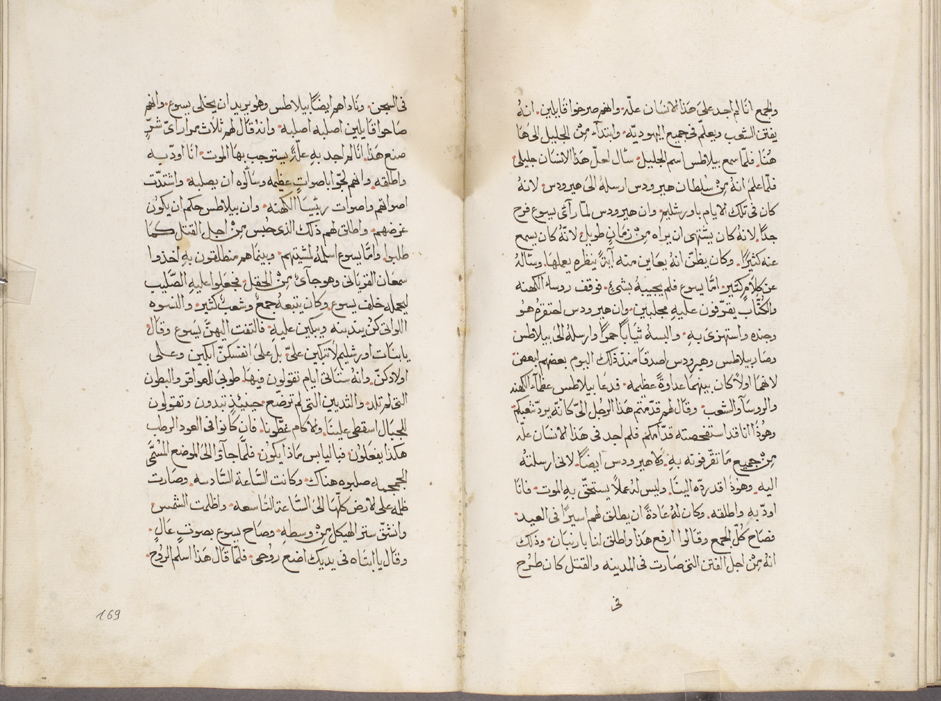 والجمع انا لم اجد على هذا الانسان علّة. وانهم صرخوا قايلين. انهُ
يفتن الشعب ويعلّم فى جميع اليهوديّة. وابتدأ مِن الجليل الى ها
هُنا. فلمّا سمع بيلاطس اسم الجليل. سأل لعلّ هذا الانسان جليلى.
فلمّا علم انهُ مِن سلطان هيرودس ارسله الى هيرودس. لانهُ
كان فى تلك الايام باورشليم. وان هيرودس لمّا رأى يسوع فرح
جدًا. لانهُ كان يشتهى ان يراه مِن زمان طويل. لانهُ كان يسمع
عنه كثيرًا. وكان يظن انهُ يعاين منه آيةً ينظره يعملها. وسألهُ
عن كلام كثير. امّا يسوع فلم يجيبهُ بشئ. فوقف روسا الكهنه
والكُتّاب يقرّفون عليه مجلبين. وان هيرودس احتقرهُ هو
وجنده واستهزى به. والبسهُ ثيابًا حمرًا وارسله الى بيلاطس
وصار بيلاطس وهيرودس اصدقا منذ ذلك اليوم بعضهم لبعض
لانهما اولاً كان بينهما عداوةً عظيمه. فدعا بيلاطس عظمآ الكهنه
والروسآ والشعب. وقال لهم قدّمتم هذا الرجل الىّ كانه يردّ شعبكم
وهُوذا انا قد استفحصته قدّامكم فلم اجد فى هذا الانسان علّه
مِن جميع ما تقرفوته به. ولا هيرودس ايضًا. لانى ارسلتهُ
اليه. وهُوذا قد ردّه الينا. وليس لهُ عملاً يستحق به الموت. فانا
اودّبه واطلقه. وكان لهُ عادةً ان يطلق لهم اسيرًا فى العيد.
فصاح كلّ الجمع وقالوا ارفع هذا واطلق لنا بارنبان. وذلك
انهُ مِن اجل الفتن التى صارت فى المدينه والقتل كان طرح
فى
فى السجن. وناداهم ايضًا بيلاطس وهو يريد ان يخلى يسوع. وانهم
صاحوا قايلين اصلبه اصلبه. وانهُ قال لهم ثلاث مرار اىّ شرّ
صنع هذا. انا لم اجد به علّةً يستوجب بها الموت. انا اودّبه
واطلقه. وانهم لجّوا باصوات عظيمه وسألوه ان يصلبه. واشتدّت
اصواتهم واصوات رئيسا الكهنه. وان بيلاطس حكم ان يكون
غرضهم. واطلق لهم ذلك الذى حبس مِن اجل القتل كما
طلبوا. وامّا يسوع اسلمهُ لمشيتهم. وبينما هم منطلقون به اخذوا
سمعان القريانى وهو جآئ مِن الحقل. فجعلوا عليه الصليب
ليحمله خلف يسوع. وكان يتبعهُ جمع وشعب كثير. والنسوه
اللواتى كنّ يندبنه ويبكين عليه. فالتفت اليهنّ يسوع وقال
يا بنات اورشليم لا تبكين علىّ بل على انفسكنّ ابكين وعلى
اولادكنّ. وانهُ ستاتى ايام تقولون فيها. طوبى للعواقر والبطون
التى لم تلد. والثديين التى لم ترضع. حينيذٍ تبدون وتقولون
للجبال اسقطى علينا. وللاكام غطّونا. فان كانوا فى العود الرطب
هكذا يفعلون. فباليابس ماذا يكون. فلمّا جآؤا الى الموضع المسمّى
الجمجمه صلبوه هناك. وكانت السّاعة السّادسه. وصارت
ظلمه على الارض كلّها الى السّاعة التاسعه. واظلمت الشمس.
وانشق ستر الهيكل مِن وسطه. وصاح يسوع بصوت عالٍ.
وقال يا ابتاه فى يديك اضع روحى. فلمّا قال هذا اسلم الروح.
169